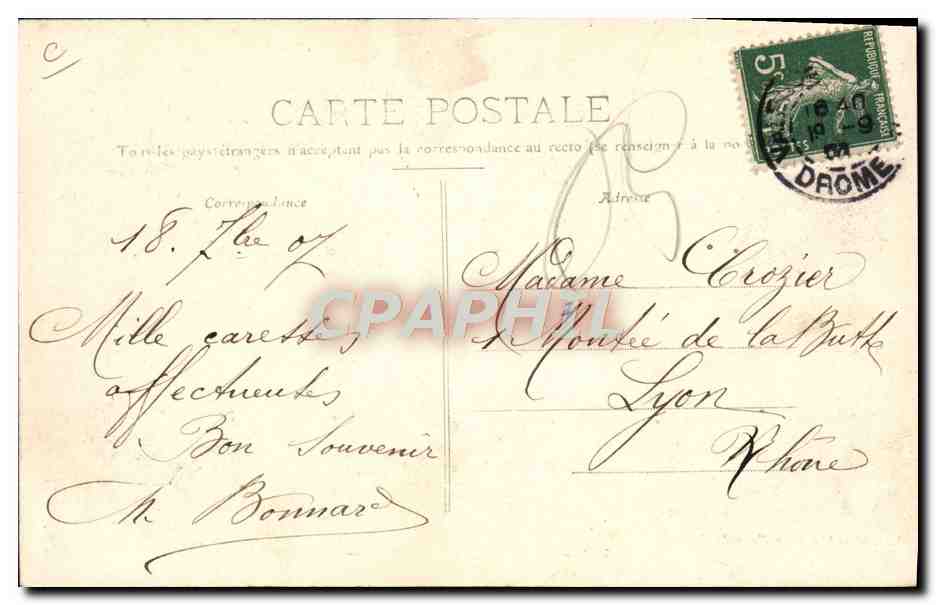 C
CARTE POSTALE
Tous les pays étrangers n'acceptent pas la correspondance au recto (se renseigner à la po
Correspondance
Adresse
18. 7bre 07
Mille caresses
affectueuses
Bon Souvenir
M. Bonnard
Madame Crozier
1 Montée de la Butte
Lyon
Rhône
5c
REPUBLIQUE FRANÇAISE
DROME
CPAPHIL